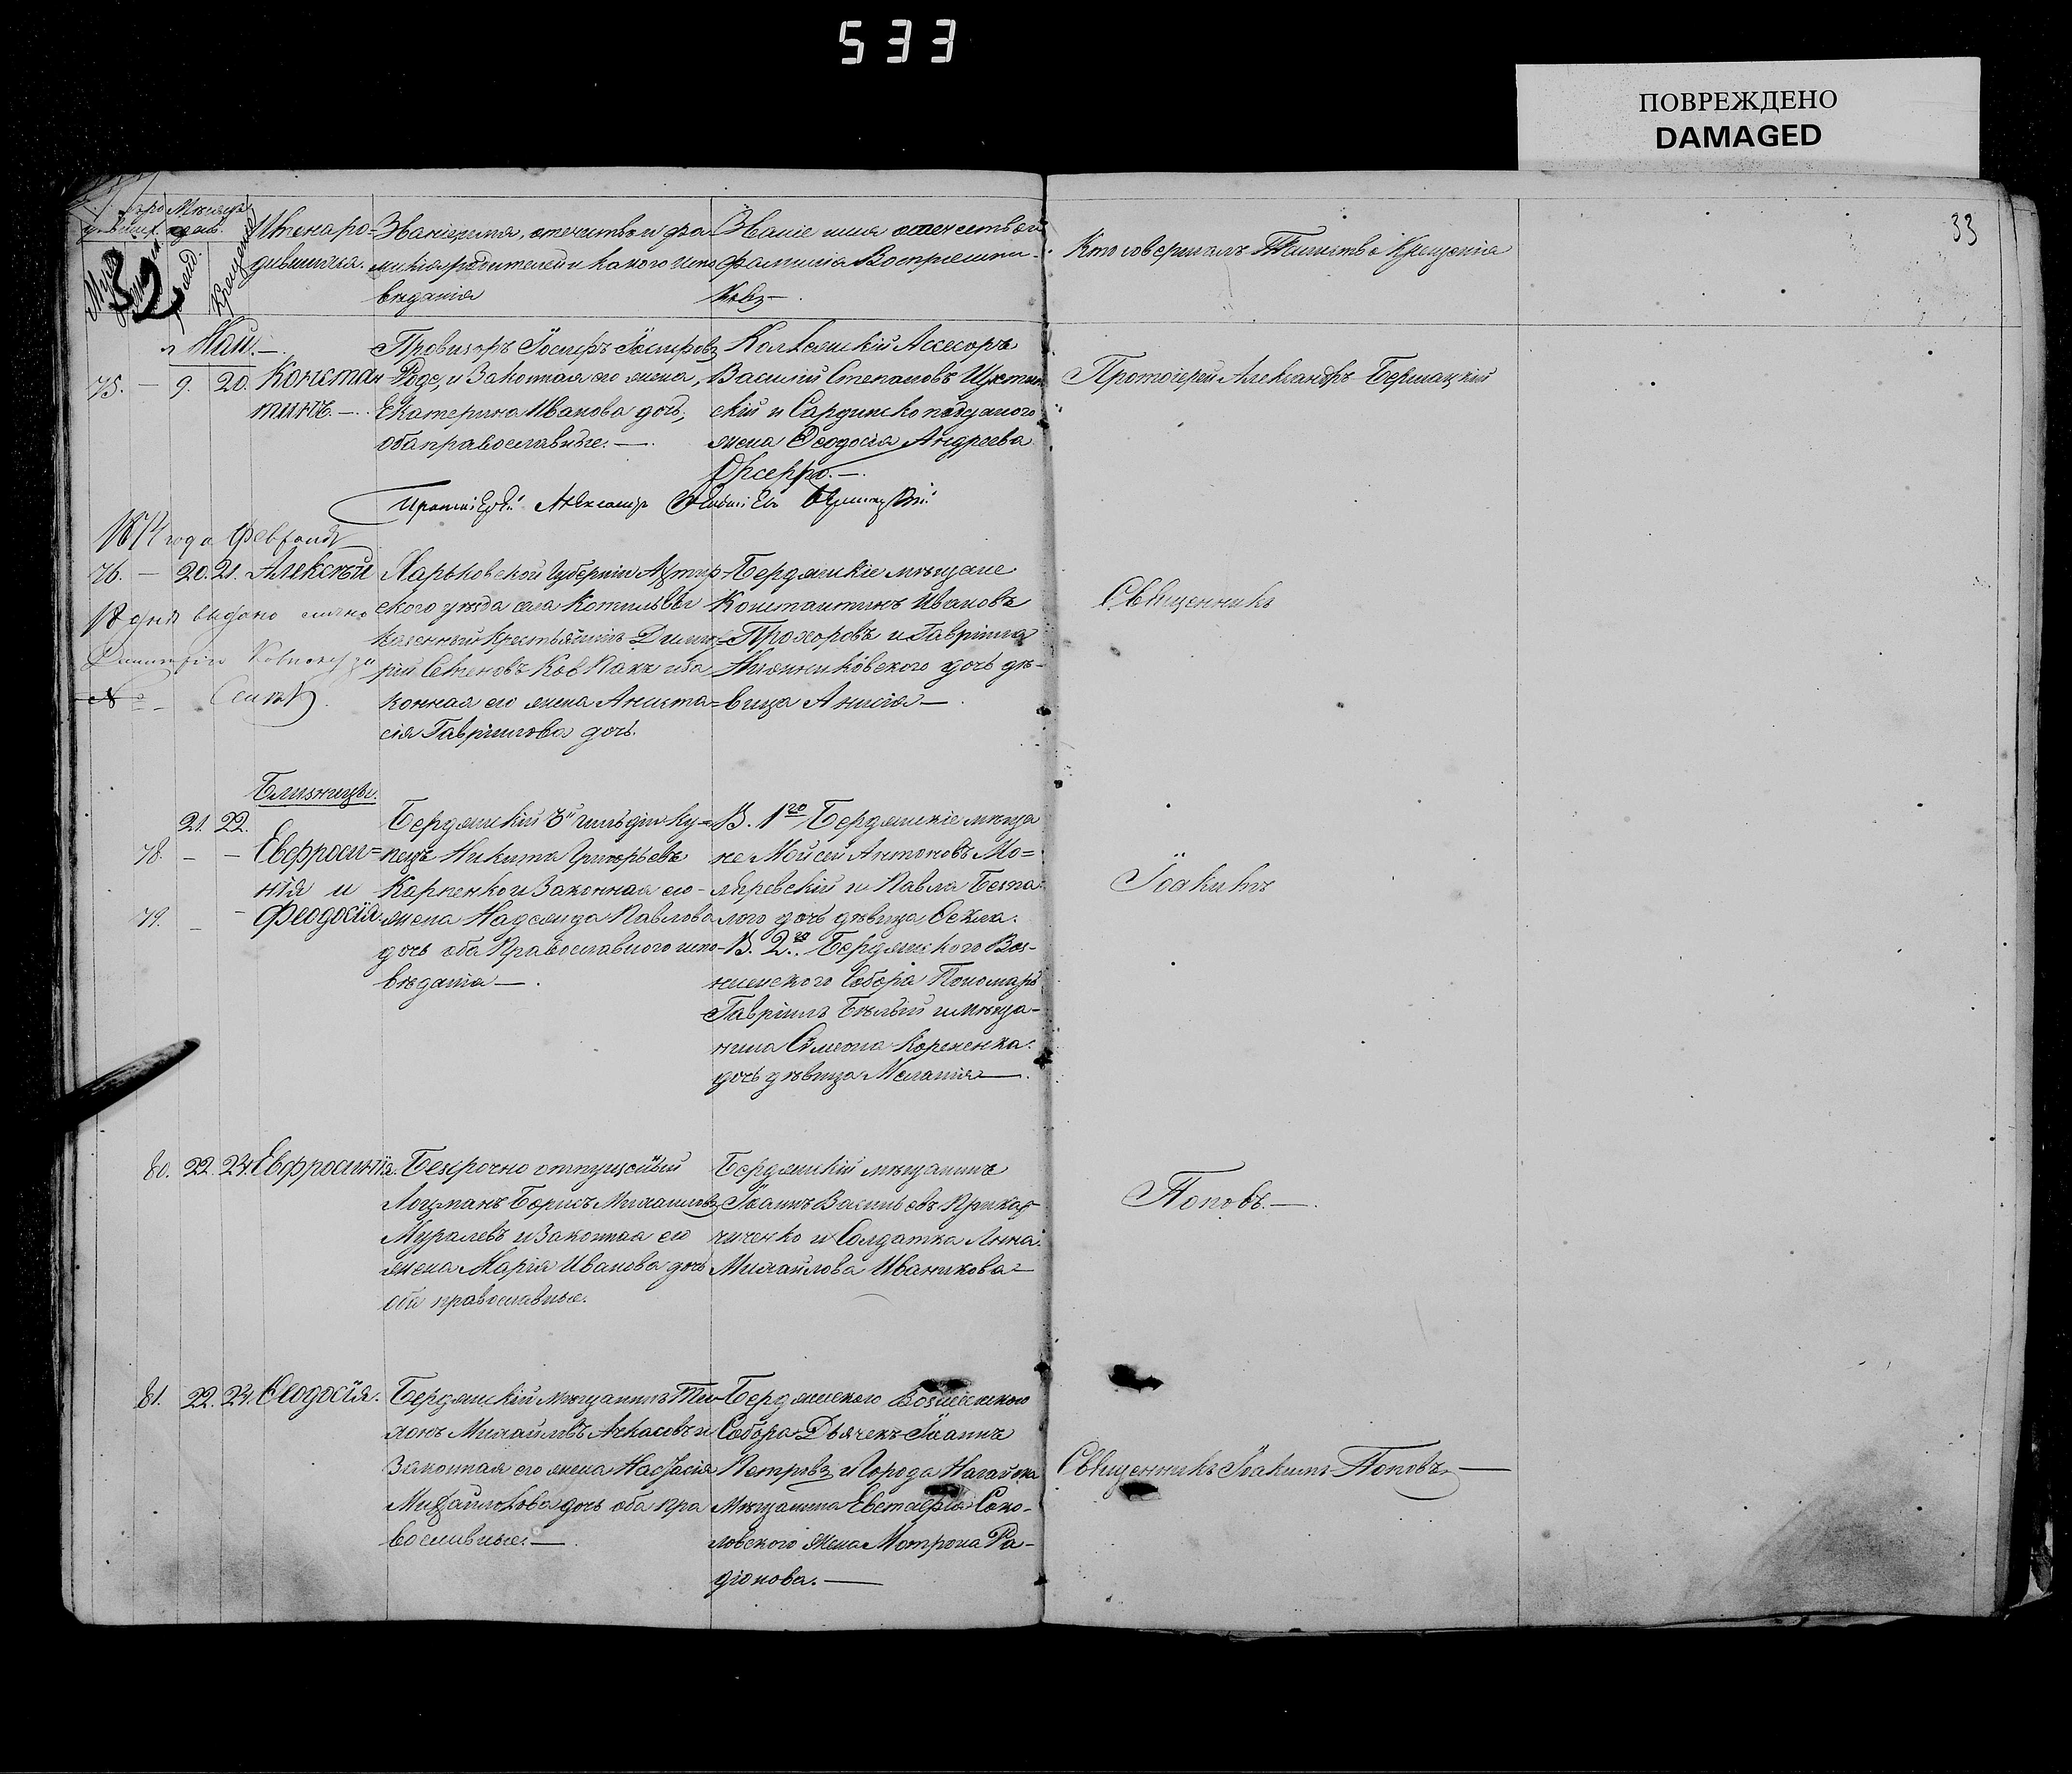 533
ПОВРЕЖДЕНО
DAMAGED
33
Мѣсяцъ
Имена ро-
дившихся.
Званіе, имя, отечество и фа-
милія родителей и какого испо
вѣданія
Званіе имя отечество и
фамилія Воспріемни-
ковъ.
Кто совершалъ Таинство Крещенія
32
Маій
75. — 9. 20. Констан
тинъ. —
Провизоръ Іосифъ Іосифовъ
Роде, и Законная его жена,
Екатерина Иванова дочь,
оба православные. —
Коллежскій Ассесоръ
Василій Степановъ
скій и Сардинскоподданого
жена Ѳеодосія Андреева
Протоіерей Александръ
Протоіерей Александръ
1874 года Февраля
76. — 20. 21. Алексѣй
18 дня выдано
Харьковской Губерніи Ахтыр
ского уѣзда села Котельвы
казенный крестьянинъ Дими
рій Семеновъ Ковпакъ и за
конная его жена Анаста=
сія Гавріилова дочь.
Бердянскіе мѣщане
Константинъ Ивановъ
Прохоровъ и Гавріила
дочь дѣ-
вица Анисія —
Священникъ
Близнецы.
21. 22.
78. — — Евфроси=
нія и
79. — Феодосія.
Бердянскій 3й гильдіи ку=
пецъ Никита Григорьевъ
Карпенко и Законная его
жена Надежда Павлова
дочь оба Православного испо-
вѣданія —.
В. 1го Бердянскіе мѣща
не Моисей Антоновъ Мо=
и Павла
лого дочь дѣвица Ѳекла.
В. 2го. Бердянского Воз-
несенского Собора Пономарь
Гавріилъ Бѣлый и мѣща-
нина Симеона
дочь дѣвица Меланія —.
Іоакимъ
80. 22. 24. Евфросинія.
Безсрочно отпущеный
Лоцманъ Борисъ Михаиловъ
Муралевъ и Законная его
жена Марія Иванова дочь
оба православные.
Бердянскій мѣщанинъ
Іоаннъ Васильевъ
ченко и Солдатка Анна
Михайлова Иваникова
Поповъ. —.
81. 22. 24. Ѳеодосія.
Бердянскій мѣщанинъ Ти
хонъ Михайловъ Аскасовъ и
Законная его жена Настасія
Михайлова дочь оба пра
вославные. —.
Бердянского Вознесенского
Собора Дьячекъ Іоаннъ
Петровъ и Города Нагайска
Мѣщанина Евстафія Соко-
ловского жена Матрона Ра-
діонова. —
Священникъ Іоакимъ Поповъ. —